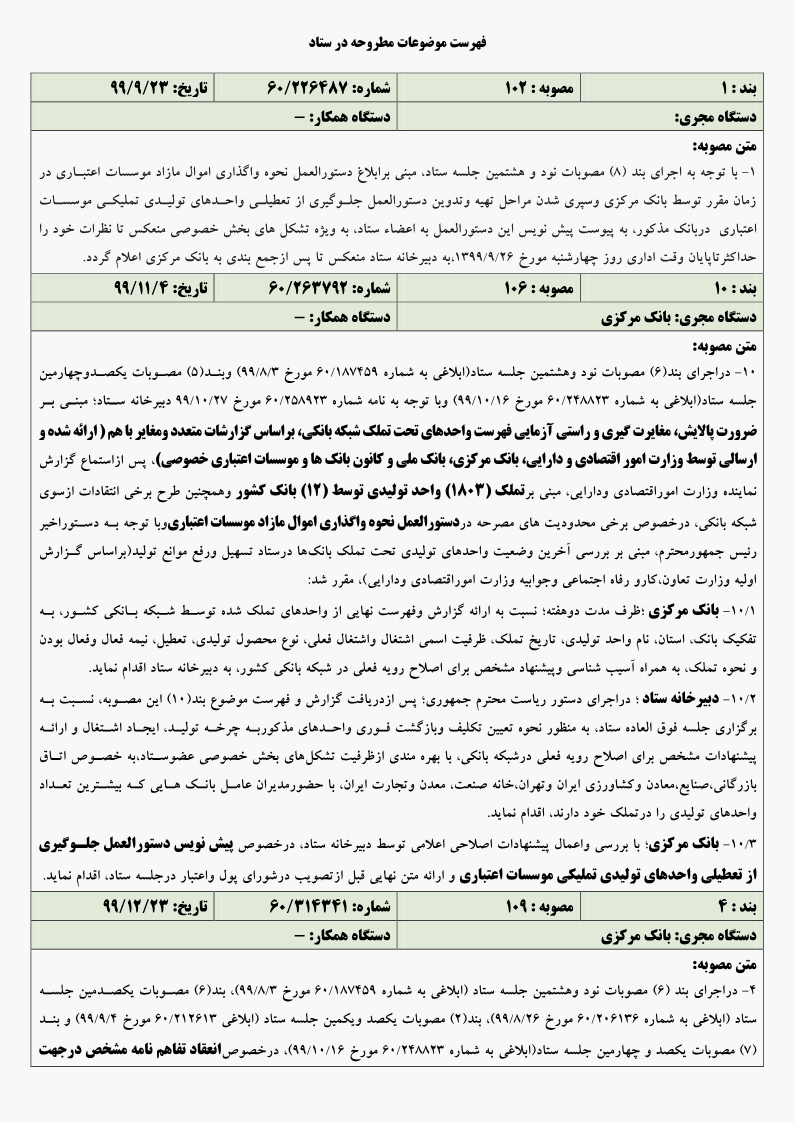 فهرست موضوعات مطروحه در ستاد
بند : ۱ مصوبه : ۱۰۲ شماره: ۶۰/۲۲۶۴۸۷ تاریخ: ۹۹/۹/۲۳
دستگاه مجری: دستگاه همکار: –
متن مصوبه:
۱- با توجه به اجرای بند (۸) مصوبات نود و هشتمین جلسه ستاد، مبنی برابلاغ دستورالعمل نحوه واگذاری اموال مازاد موسسات اعتبـاری در
زمان مقرر توسط بانک مرکزی وسپری شدن مراحل تهیه وتدوین دستورالعمل جلـوگیری از تعطیلـی واحـدهای تولیـدی تملیکـی موسسـات
اعتباری دربانک مذکور، به پیوست پیش نویس این دستورالعمل به اعضاء ستاد، به ویژه تشکل های بخش خصوصی منعکس تا نظرات خود را
حداکثرتاپایان وقت اداری روز چهارشنبه مورخ ۱۳۹۹/۹/۲۶،به دبیرخانه ستاد منعکس تا پس ازجمع بندی به بانک مرکزی اعلام گردد.
بند : ۱۰ مصوبه : ۱۰۶ شماره: ۶۰/۲۶۳۷۹۲ تاریخ: ۹۹/۱۱/۴
دستگاه مجری: بانک مرکزی دستگاه همکار: –
متن مصوبه:
۱۰- دراجرای بند(۶) مصوبات نود وهشتمین جلسه ستاد(ابلاغی به شماره ۶۰/۱۸۷۴۵۹ مورخ ۹۹/۸/۳) وبنـد(۵) مصـوبات یکصـدوچهارمین
جلسه ستاد(ابلاغی به شماره ۶۰/۲۴۸۸۲۳ مورخ ۹۹/۱۰/۱۶) وبا توجه به نامه شماره ۶۰/۲۵۸۹۲۳ مورخ ۹۹/۱۰/۲۷ دبیرخانه سـتاد؛ مبنـی بـر
ضرورت پالایش، مغایرت گیری و راستی آزمایی فهرست واحدهای تحت تملک شبکه بانکی، براساس گزارشات متعدد ومغایر با هم ( ارائه شده و
ارسالی توسط وزارت امور اقتصادی و دارایی، بانک مرکزی، بانک ملی و کانون بانک ها و موسسات اعتباری خصوصی)، پس ازاستماع گزارش
نماینده وزارت اموراقتصادی ودارایی، مبنی برتملک (۱۸۰۳) واحد تولیدی توسط (۱۲) بانک کشور وهمچنین طرح برخی انتقادات ازسوی
شبکه بانکی، درخصوص برخی محدودیت های مصرحه دردستورالعمل نحوه واگذاری اموال مازاد موسسات اعتباریوبا توجه بـه دسـتوراخیر
رئیس جمهورمحترم، مبنی بر بررسی آخرین وضعیت واحدهای تولیدی تحت تملک بانک‌ها درستاد تسهیل ورفع موانع تولید(براساس گـزارش
اولیه وزارت تعاون،کارو رفاه اجتماعی وجوابیه وزارت اموراقتصادی ودارایی)، مقرر شد:
۱۰/۱- بانک مرکزی ؛ظرف مدت دوهفته؛ نسبت به ارائه گزارش وفهرست نهایی از واحدهای تملک شده توسـط شـبکه بـانکی کشـور، بـه
تفکیک بانک، استان، نام واحد تولیدی، تاریخ تملک، ظرفیت اسمی اشتغال واشتغال فعلی، نوع محصول تولیدی، تعطیل، نیمه فعال وفعال بودن
و نحوه تملک، به همراه آسیب شناسی وپیشنهاد مشخص برای اصلاح رویه فعلی در شبکه بانکی کشور، به دبیرخانه ستاد اقدام نماید.
۱۰/۲- دبیرخانه ستاد ؛ دراجرای دستور ریاست محترم جمهوری؛ پس ازدریافت گزارش و فهرست موضوع بند(۱۰) این مصـوبه، نسـبت بـه
برگزاری جلسه فوق العاده ستاد، به منظور نحوه تعیین تکلیف وبازگشت فـوری واحـدهای مذکوربـه چرخـه تولیـد، ایجـاد اشـتغال و ارائـه
پیشنهادات مشخص برای اصلاح رویه فعلی درشبکه بانکی، با بهره مندی ازظرفیت تشکل‌های بخش خصوصی عضوسـتاد،به خصـوص اتـاق
بازرگانی،صنایع،معادن وکشاورزی ایران وتهران،خانه صنعت، معدن وتجارت ایران، با حضورمدیران عامـل بانـک هـایی کـه بیشـترین تعـداد
واحدهای تولیدی را درتملک خود دارند، اقدام نماید.
۱۰/۳- بانک مرکزی؛ با بررسی واعمال پیشنهادات اصلاحی اعلامی توسط دبیرخانه ستاد، درخصوص پیش نویس دستورالعمل جلـوگیری
از تعطیلی واحدهای تولیدی تملیکی موسسات اعتباری و ارائه متن نهایی قبل ازتصویب درشورای پول واعتبار درجلسه ستاد، اقدام نماید.
بند : ۴ مصوبه : ۱۰۹ شماره: ۶۰/۳۱۴۳۴۱ تاریخ: ۹۹/۱۲/۲۳
دستگاه مجری: بانک مرکزی دستگاه همکار: –
متن مصوبه:
۴- دراجرای بند (۶) مصوبات نود وهشتمین جلسه ستاد (ابلاغی به شماره ۶۰/۱۸۷۴۵۹ مورخ ۹۹/۸/۳)، بند(۶) مصـوبات یکصـدمین جلسـه
ستاد (ابلاغی به شماره ۶۰/۲۰۶۱۳۶ مورخ ۹۹/۸/۲۶)، بند(۲) مصوبات یکصد ویکمین جلسه ستاد (ابلاغی ۶۰/۲۱۲۶۱۳ مورخ ۹۹/۹/۴) و بنـد
(۷) مصوبات یکصد و چهارمین جلسه ستاد(ابلاغی به شماره ۶۰/۲۴۸۸۲۳ مورخ ۹۹/۱۰/۱۶)، درخصوصانعقاد تفاهم نامه مشخص درجهت